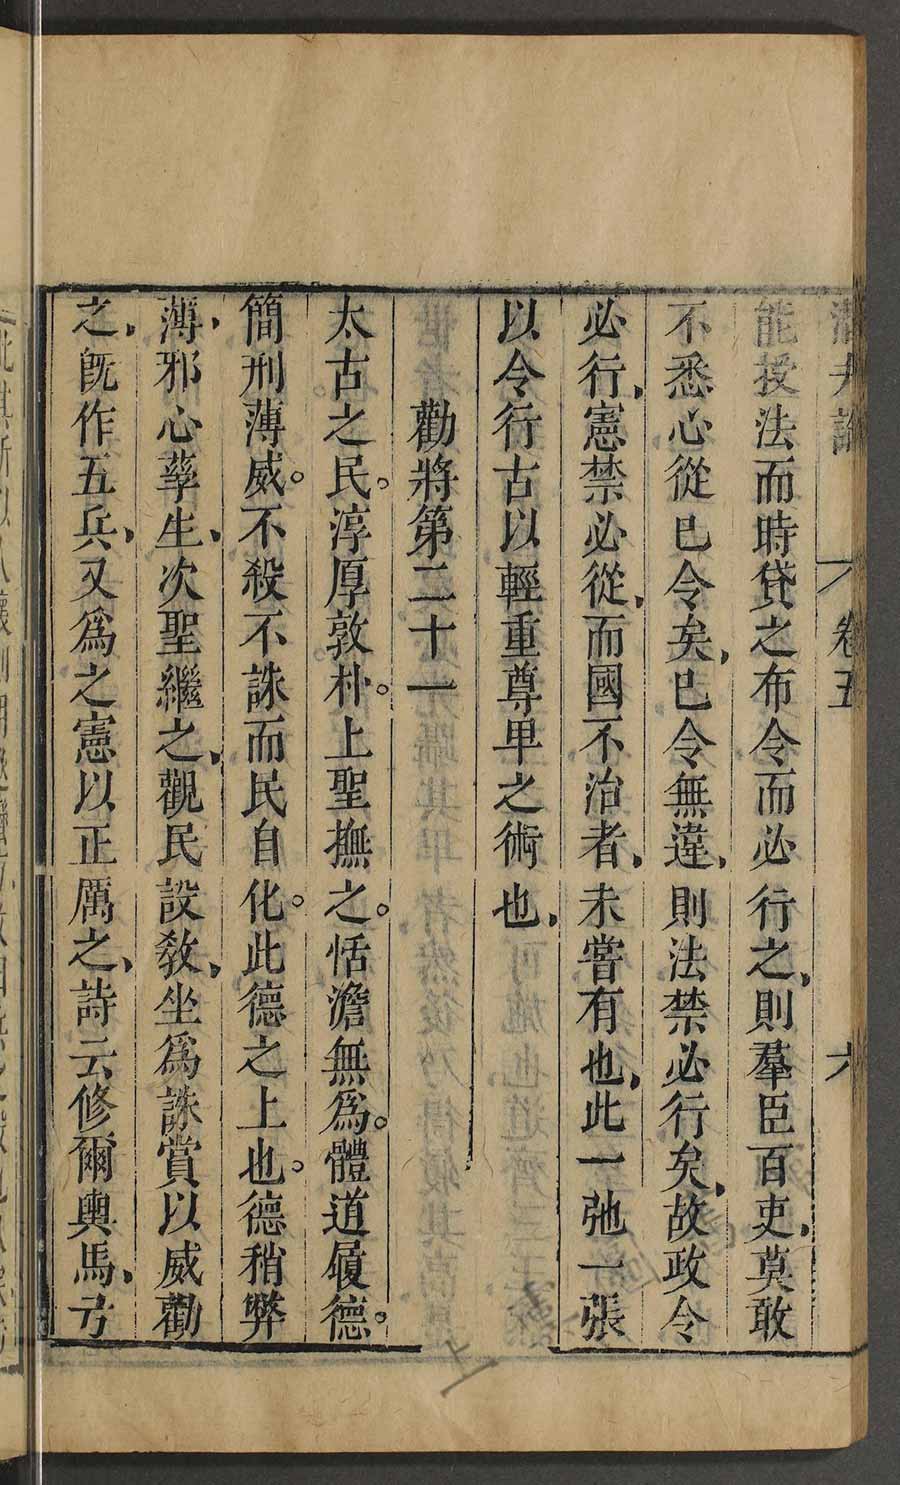 潛夫論 卷五 六
能授法而時貸之布令而必行之則羣臣百吏莫敢
不悉心從已令矣已令無違則法禁必行矣故政令
必行憲禁必從而國不治者未嘗有也此一弛一張
以令行古以輕重尊卑之術也
勸將第二十一
太古之民。淳厚敦朴。上聖撫之。恬澹無爲。體道履德。
簡刑薄威。不殺不誅而民自化。此德之上也。德稍弊
薄邪心孳生次聖繼之觀民設敎坐爲誅賞以威勸
之旣作五兵又爲之憲以正厲之詩云修爾輿馬弓